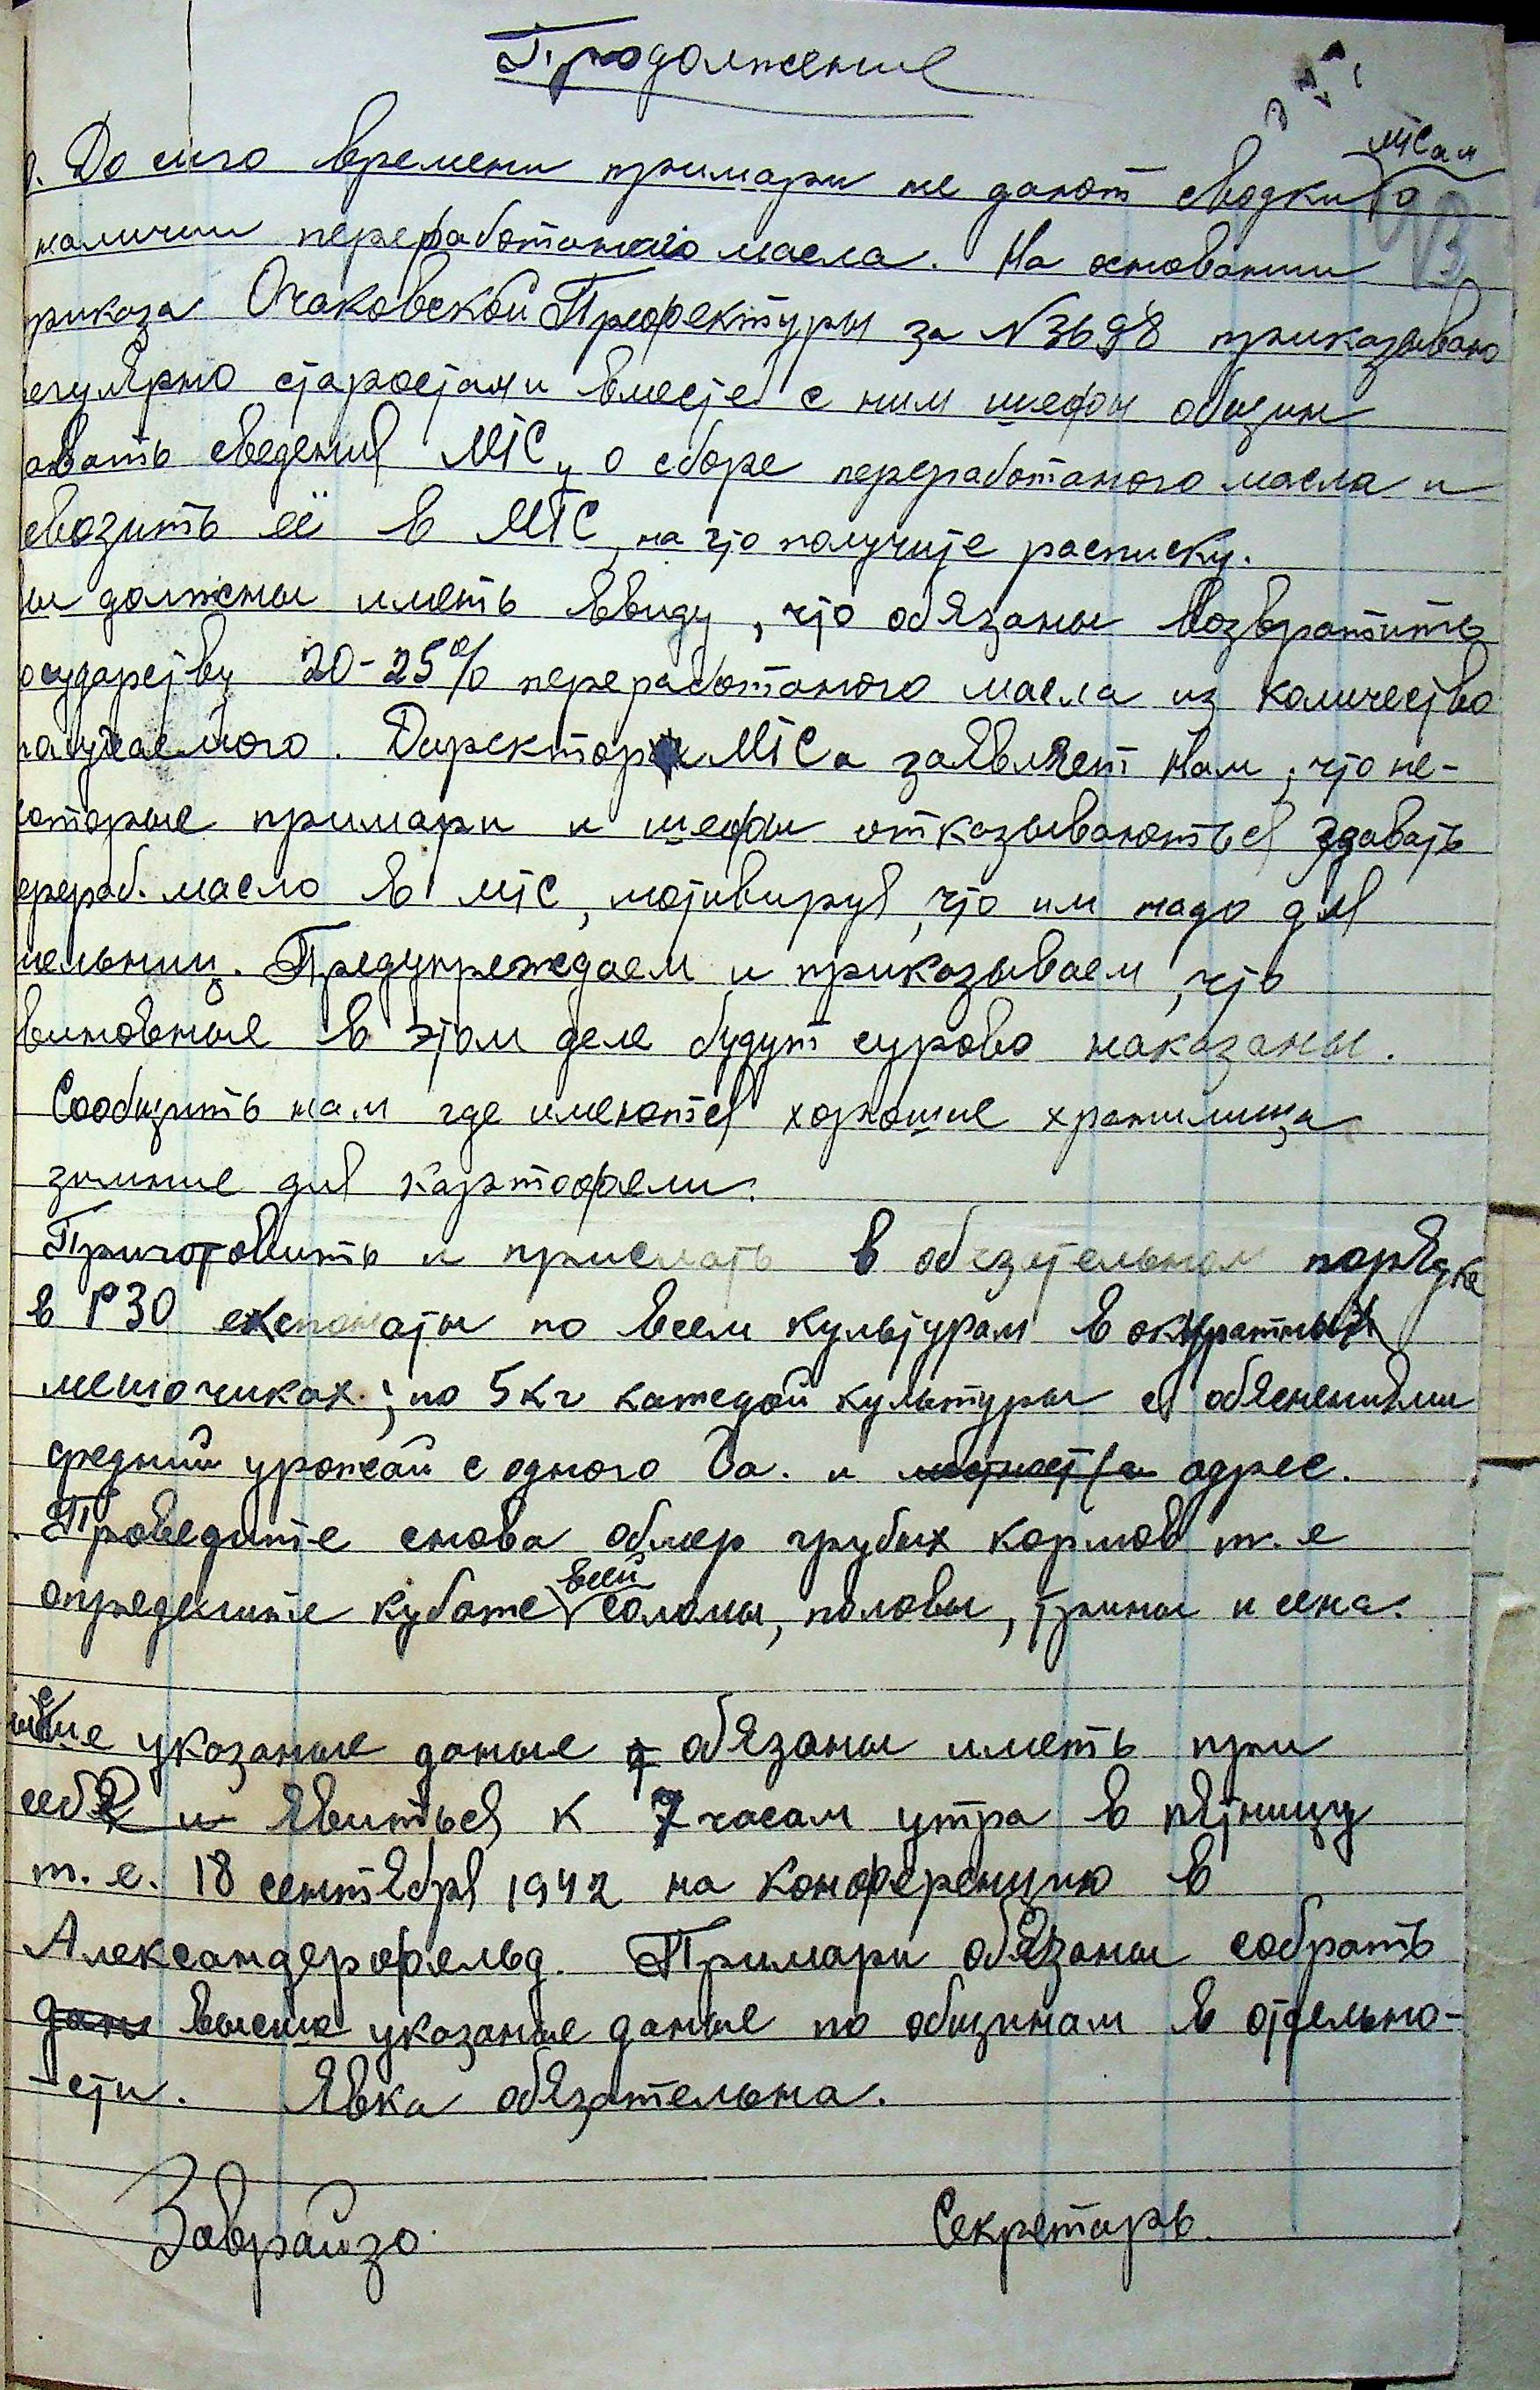 Продолжение
До сего времени примари не дают сводки МТСам о
наличии переработаного масла. На основании
приказа Очаковской Префектуры за №3698 приказываю
егулярно старостами вместе с ним шефы общин
авать сведения МТСу о сборе переработаного масла и
свозить её в МТС, на что получите расписку.
ы должены иметь ввиду, что обязаны возвратить
осударству 20-25% переработаного масла из количество
получаемого. Директор МТСа заявляет нам, что не-
оторые примари и шефы отказываються здавать
ерераб. масло в МТС, мотивируя, что им надо для
мельниц. Предупреждаем и приказываем, что
виновные в этом деле будут сурово наказаны.
Сообщить нам где имеются хорошие хранилища
зимние для картофели.
Приготовить и прислать в обязательном порядке
в РЗО экспонаты по всем культурам в окуратных
мешочиках; по 5кг каждой культуры с обяснениями
средний урожай с одного Га. и адрес.
Проведите снова обмер грубых кормов т.е
определите кубатс всей соломы, половы, трины и сена.
ыше указаные даные обязаны иметь при
себе и явиться к 7 часам утра в пятницу
т.е. 18 сентября 1942 на конференцию в
Александерфельд. Примари обязаны собрать
даны высше указаные даные по общинам в отдельно-
-сти. Явка обязательна.
Заврайзо. Секретарь.